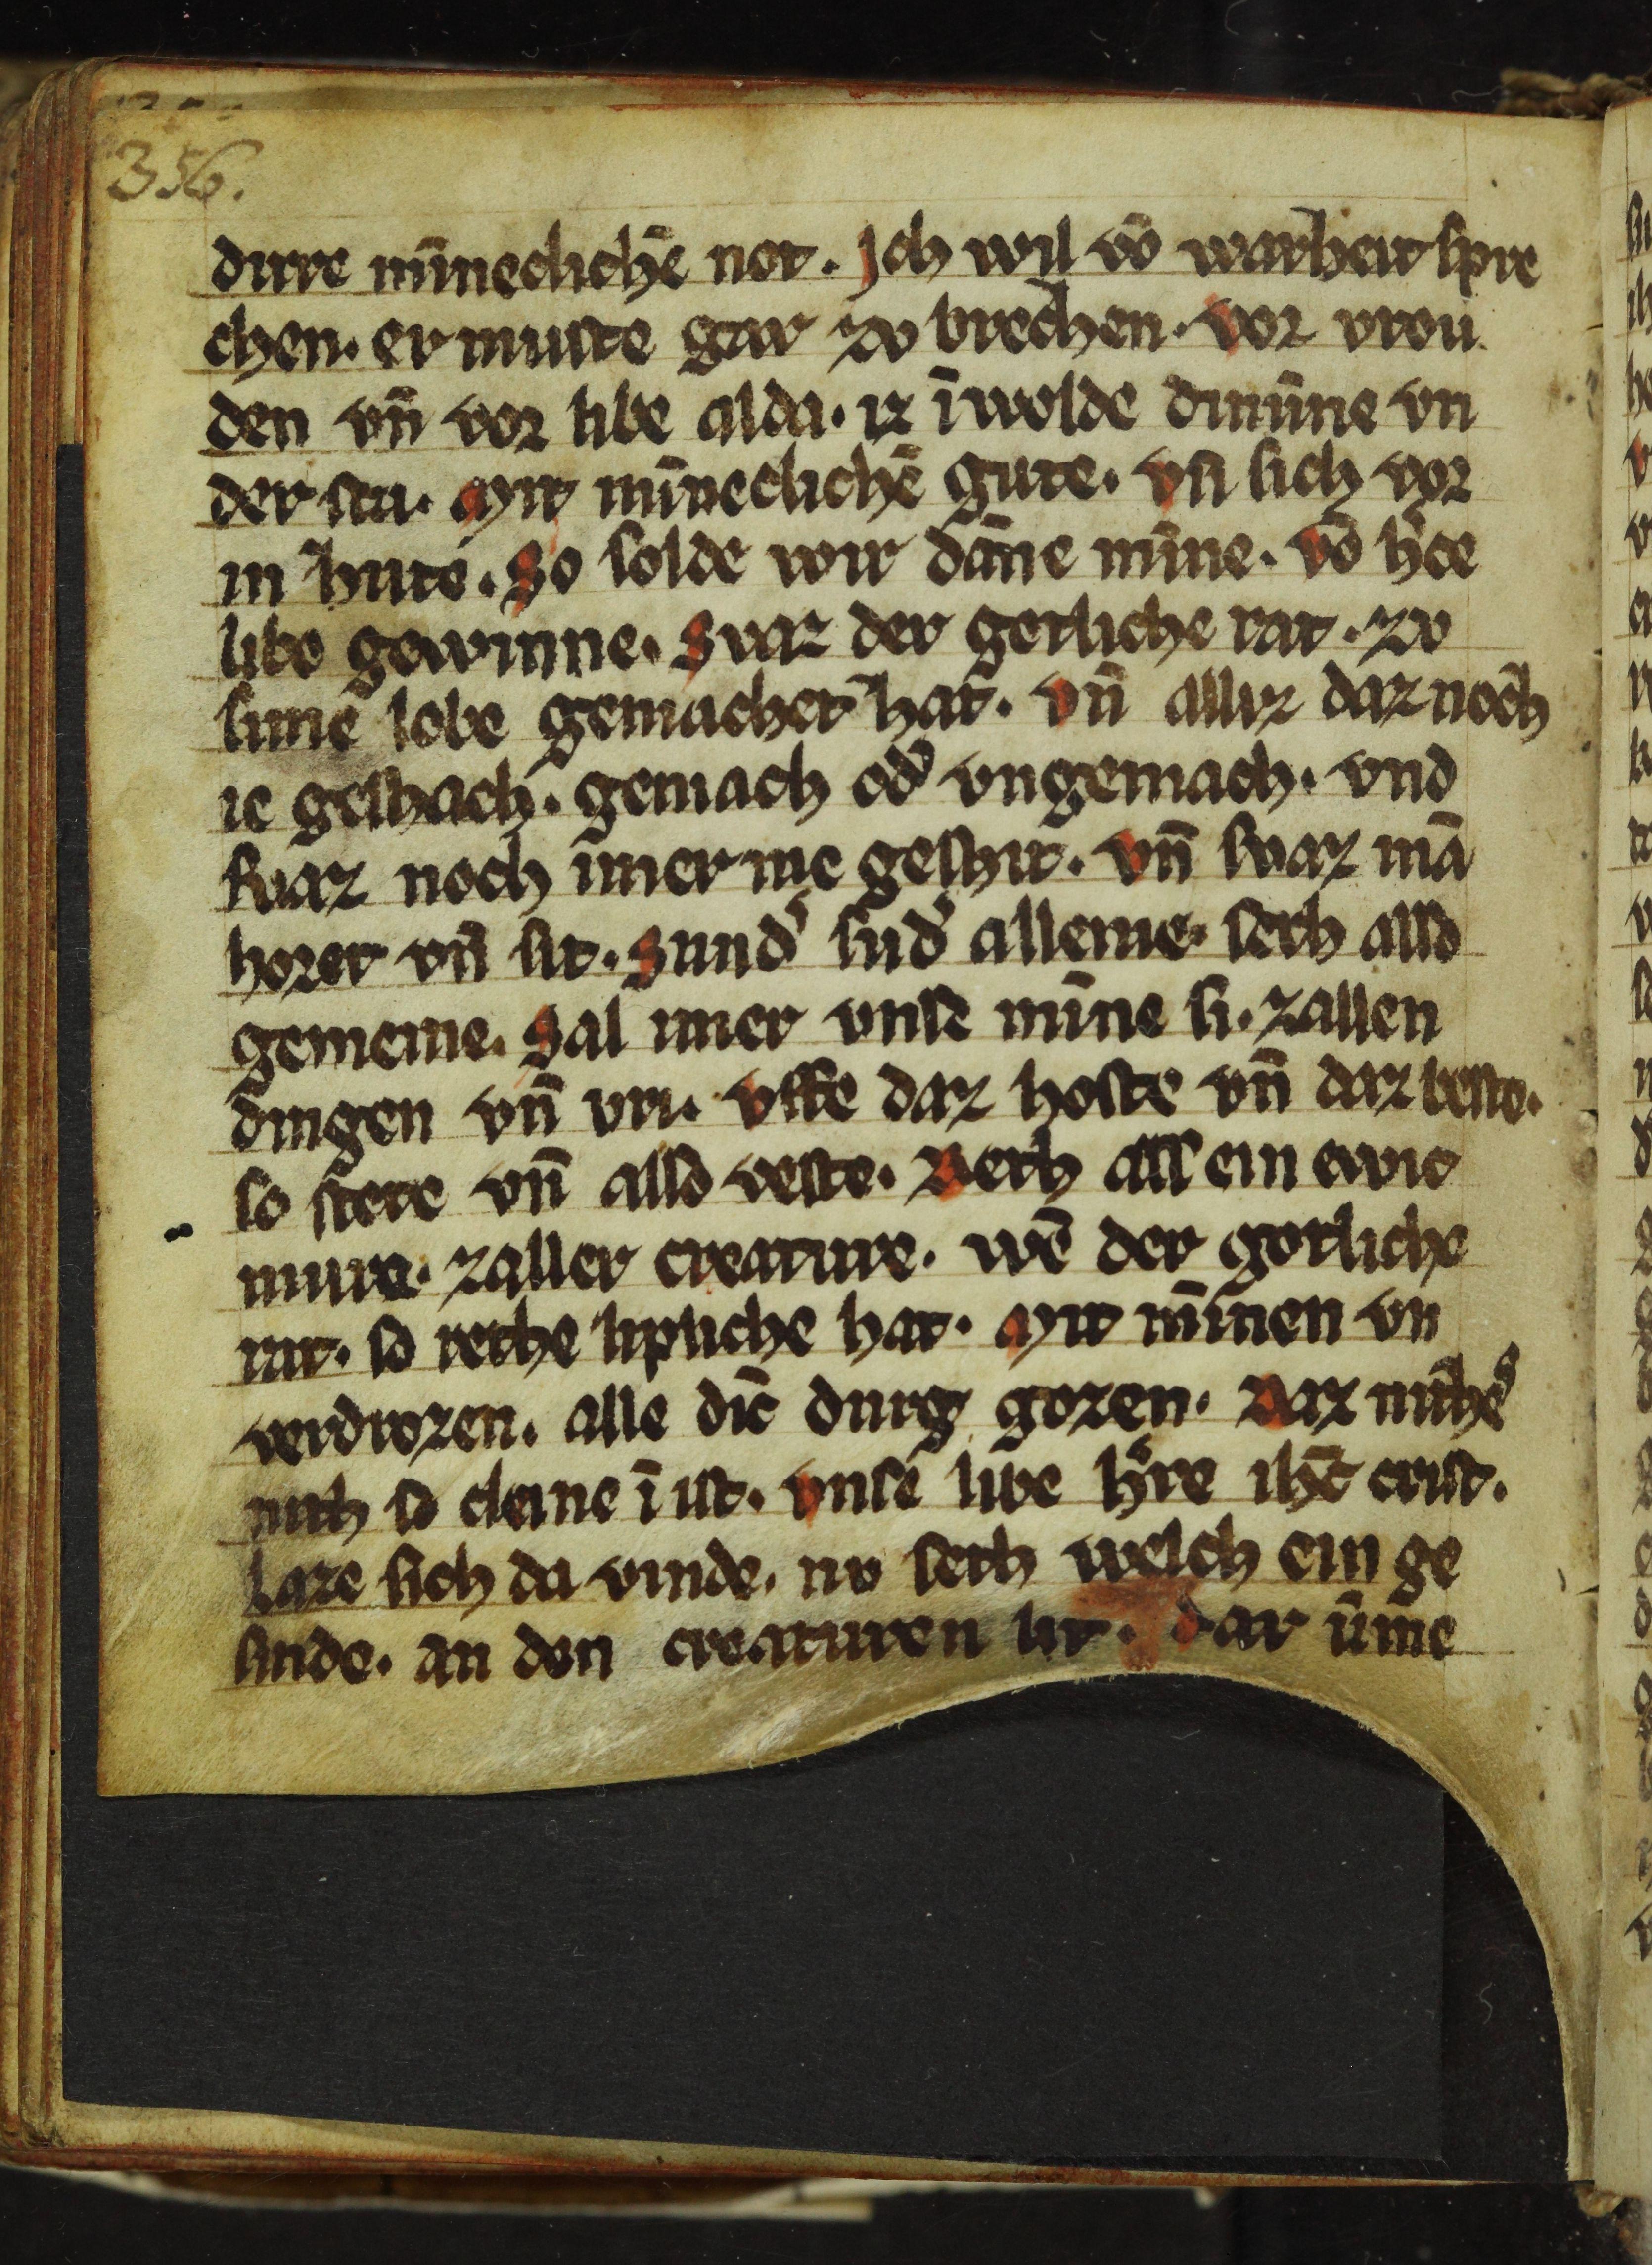 356.
dirre mīneclichē not. Ich wil vō warheit spre
chen. er muste gar zv brechen. vor vrou
den vn̄ vor libe alda. iz īwolde dimīne vn
der sta. Mit mīneclichē gute. vn̄ sich vor
in hute. So solde wir dāne mīne. vō h'ce
libe gewinne. Swaz der getliche rat. zv
sime lobe gemachet hat. vn̄ alliz daz noch
ie geshach. gemach od' vngemach. vnd
swaz noch imer me geshit. vn̄ swaz mā
horet vn̄ sit. Sund' sūd' alleine. seth also
gemeine. Sal imer vnse mīne si. zallen
dingen vn̄ vri. vffe daz hoste vn̄ daz beste.
so stete vn̄ also veste. Reth als ein ewic
mure. zaller creature. wē der gotliche
rat. so rethe lipliche hat. Mit mīnen vn
verdrozen. alle dīc durg gozen. Daz nich'
nith so cleine ī ist. vnse libe h're ihc̄ crist.
Laze sich da vinde. nv seth welch ein ge
sinde. an den creaturen lit. dar ūme